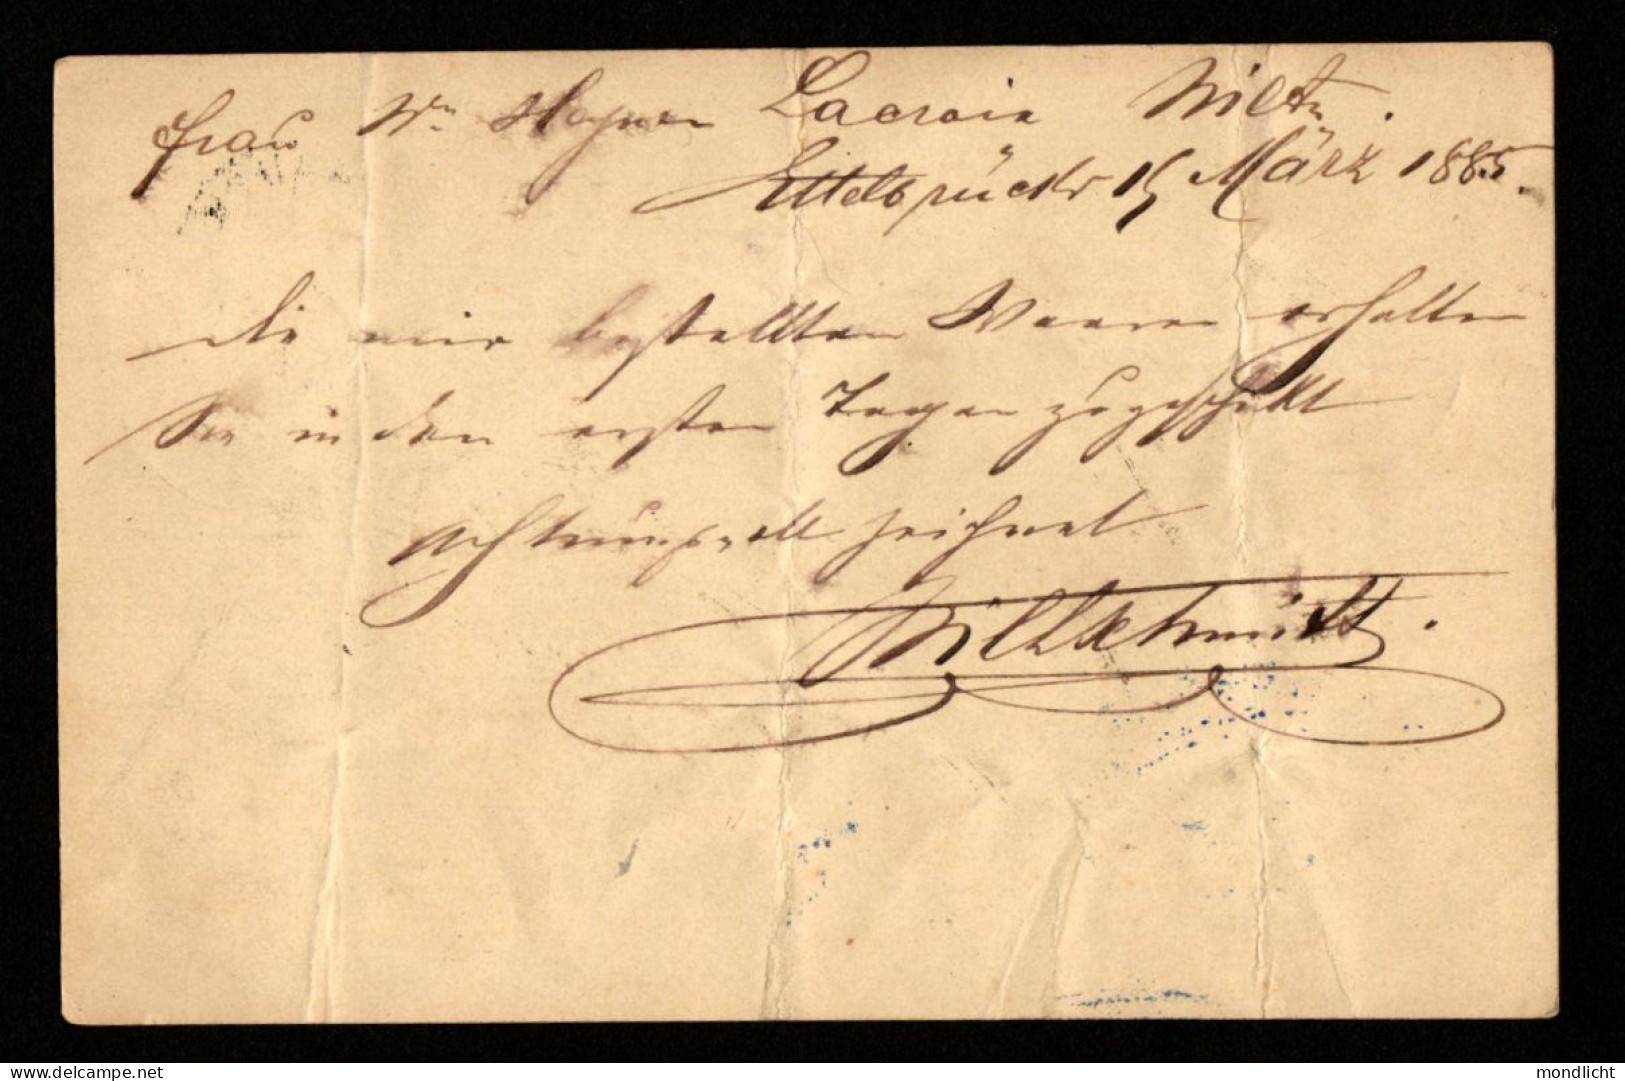 Frau Wwe Lacroix Wiltz.
Ettelbrück 15 März 1885.
Die mir bestellten Waaren erhalten
Sie in den ersten Tagen zugeschickt
achtungsvoll zeichnet
delcampe.net
mondlicht